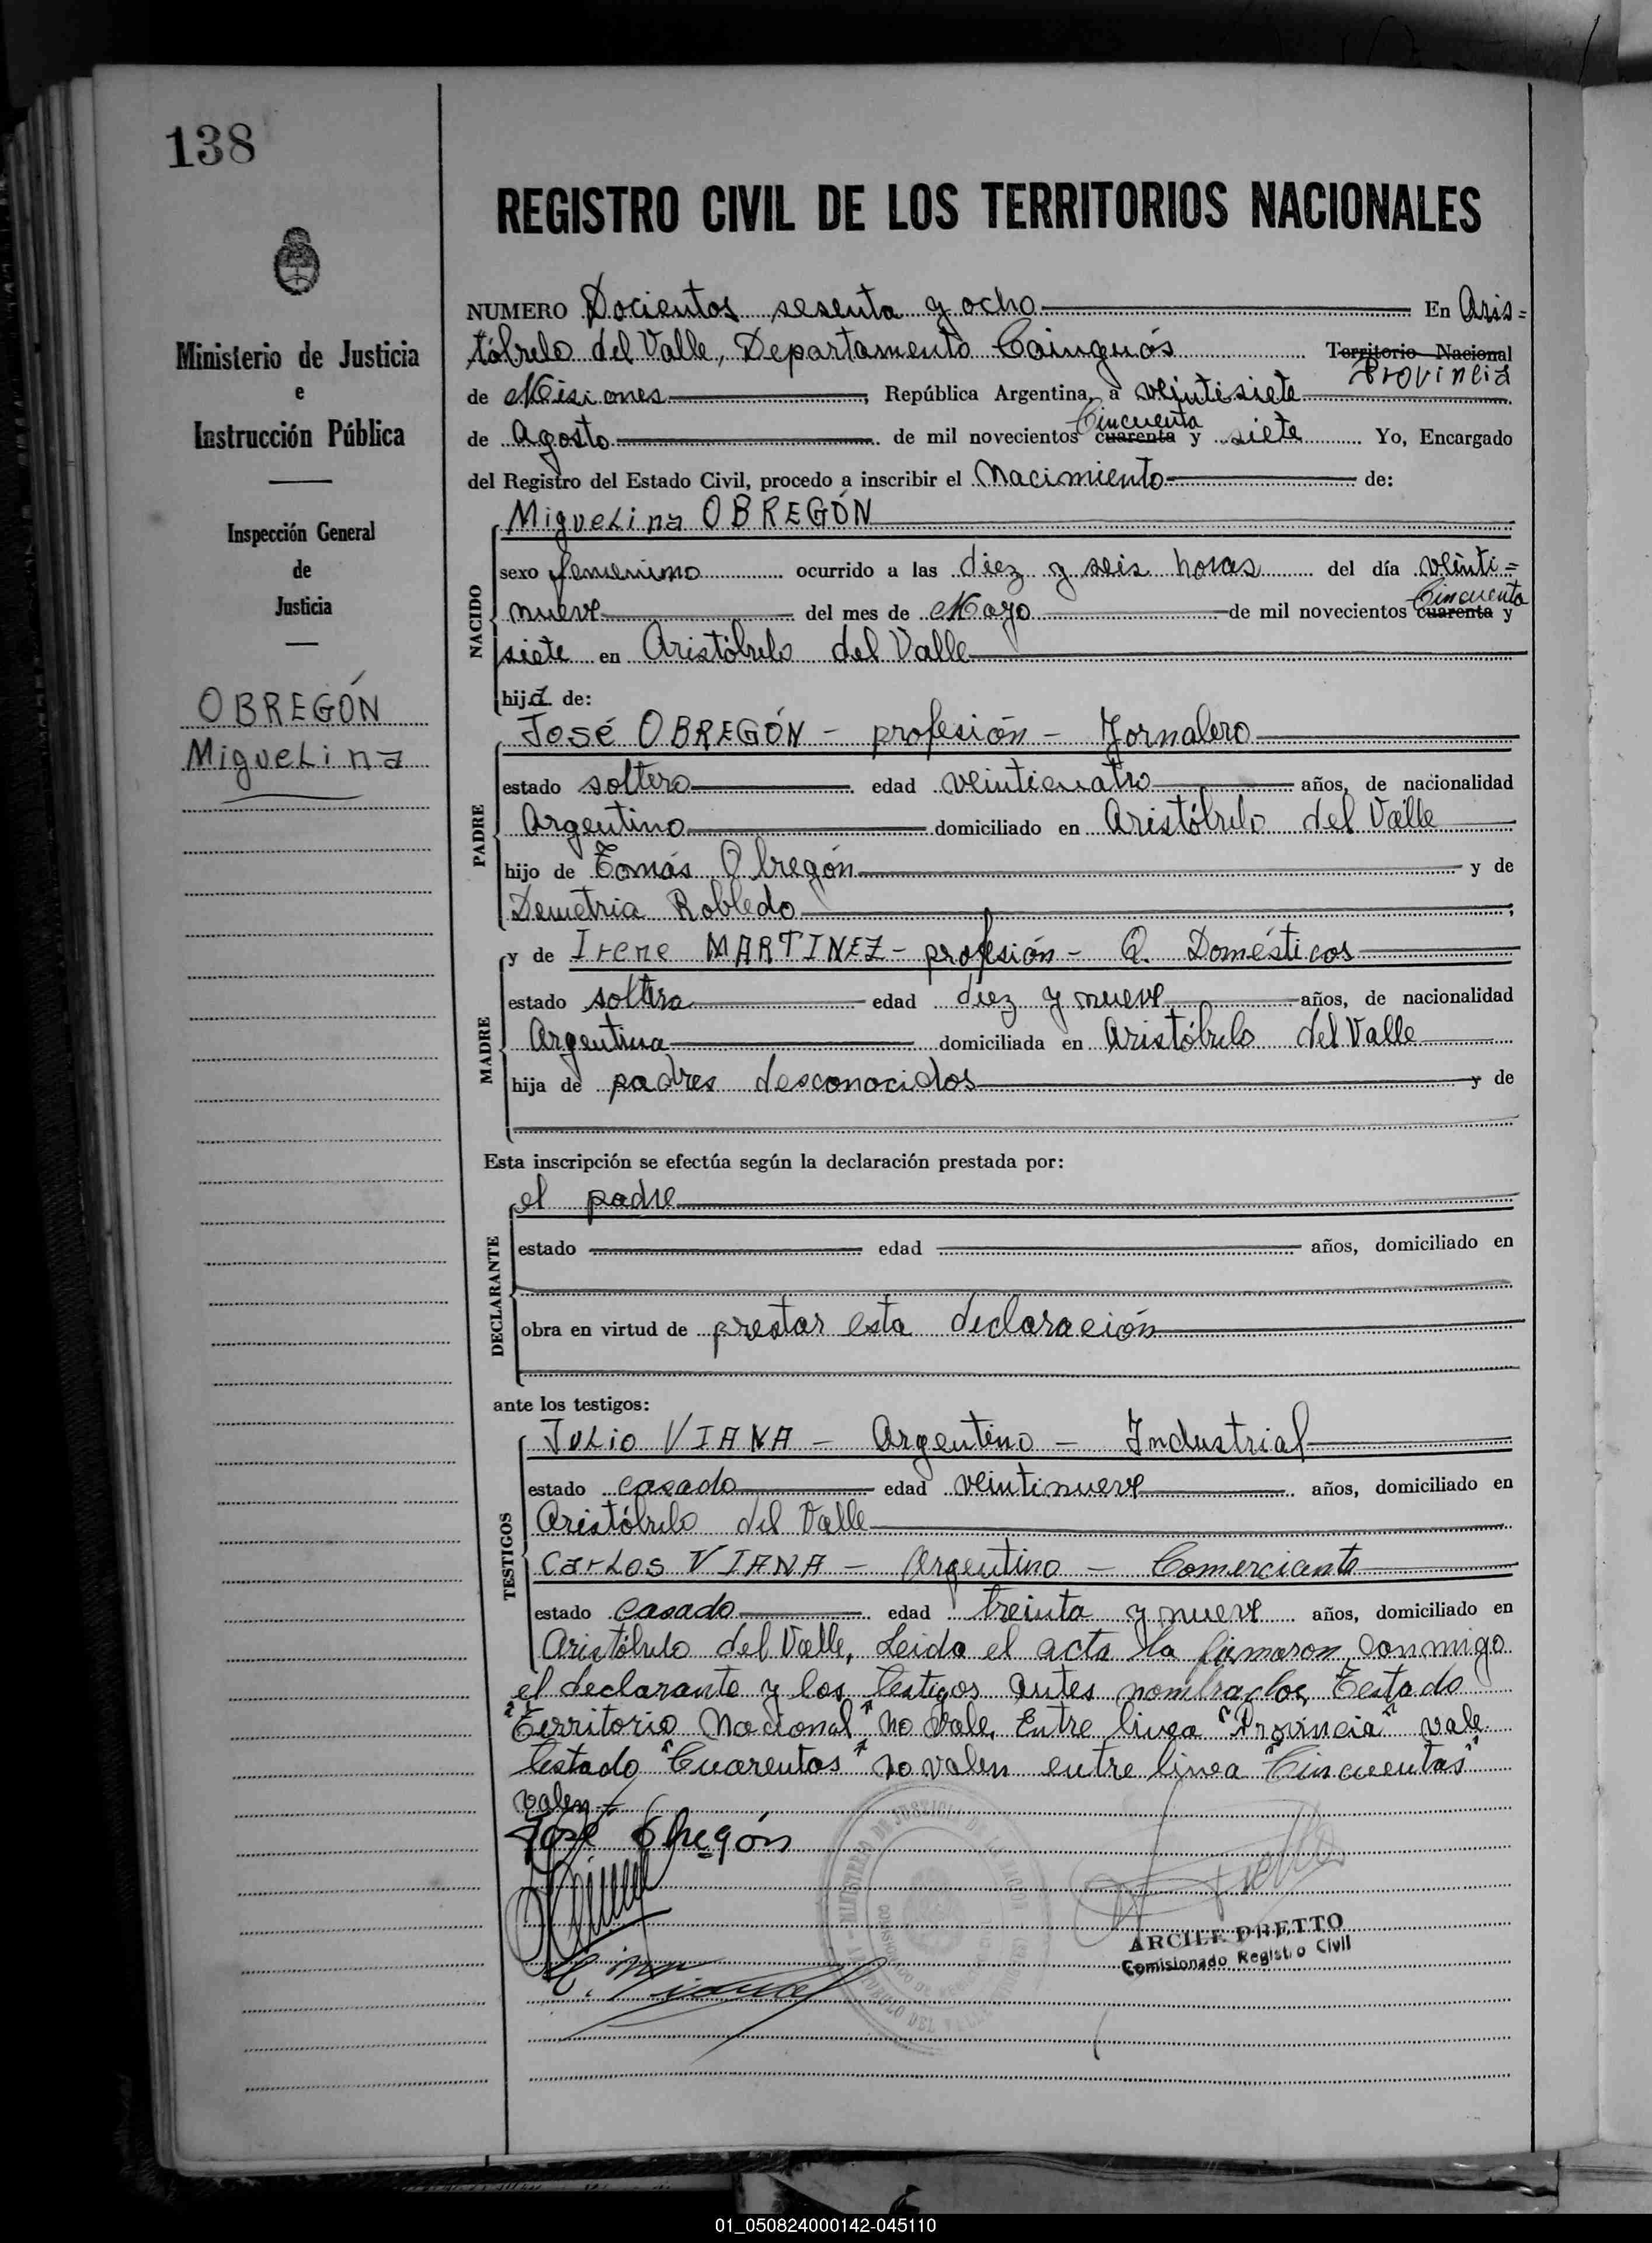 138
Ministerio de Justicia
e
Instrucción Pública
Inspección General
de
Justicia
OBREGÓN
Miguelina
REGISTRO CIVIL DE LOS TERRITORIOS NACIONALES
NUMERO Docientos sesenta y ocho En Aris=
tóbulo del Valle, Departamento Cainguás Territorio Nacional
Provincia
de Misiones, República Argentina, a veintisiete
Cincuenta
de Agosto de mil novecientos cuarenta y siete Yo, Encargado
del Registro del Estado Civil, procedo a inscribir el Nacimiento de:
NACIDO
Miguelina OBREGÓN
sexo femenino ocurrido a las diez y seis horas del día veinti=
Cincuenta
nueve del mes de Mayo de mil novecientos cuarenta y
siete en Aristóbulo del Valle
hija de:
PADRE
José OBREGÓN - profesión - Jornalero
estado soltero edad veinticuatro años, de nacionalidad
Argentino domiciliado en Aristóbulo del Valle
hijo de Tomás Obregón y de
Demetria Robledo ;
MADRE
y de Irene MARTINEZ - profesión - Q. Domésticos
estado soltera edad diez y nueve años, de nacionalidad
Argentina domiciliada en Aristóbulo del Valle
hija de padres desconocidos y de
Esta inscripción se efectúa según la declaración prestada por:
DECLARANTE
el padre
estado edad años, domiciliado en
obra en virtud de prestar esta declaración
ante los testigos:
TESTIGOS
Julio VIANA - Argentino - Industrial
estado casado edad veintinueve años, domiciliado en
Aristóbulo del Valle
Carlos VIANA - Argentino - Comerciante
estado casado edad treinta y nueve años, domiciliado en
Aristóbulo del Valle, Leida el acta la firmaron conmigo
el declarante y los testigos antes nombrados, Testado
"Territorio Nacional" no vale, Entre linea "Provincia" vale
testado "Cuarentas" no valen entre linea "Cincuentas"
valen =
José Obregón
C. Viana
MINISTERIO DE JUSTICIA DE LA NACION
ARCILE DRETTO
Comisionado Registro Civil
01_050824000142-045110